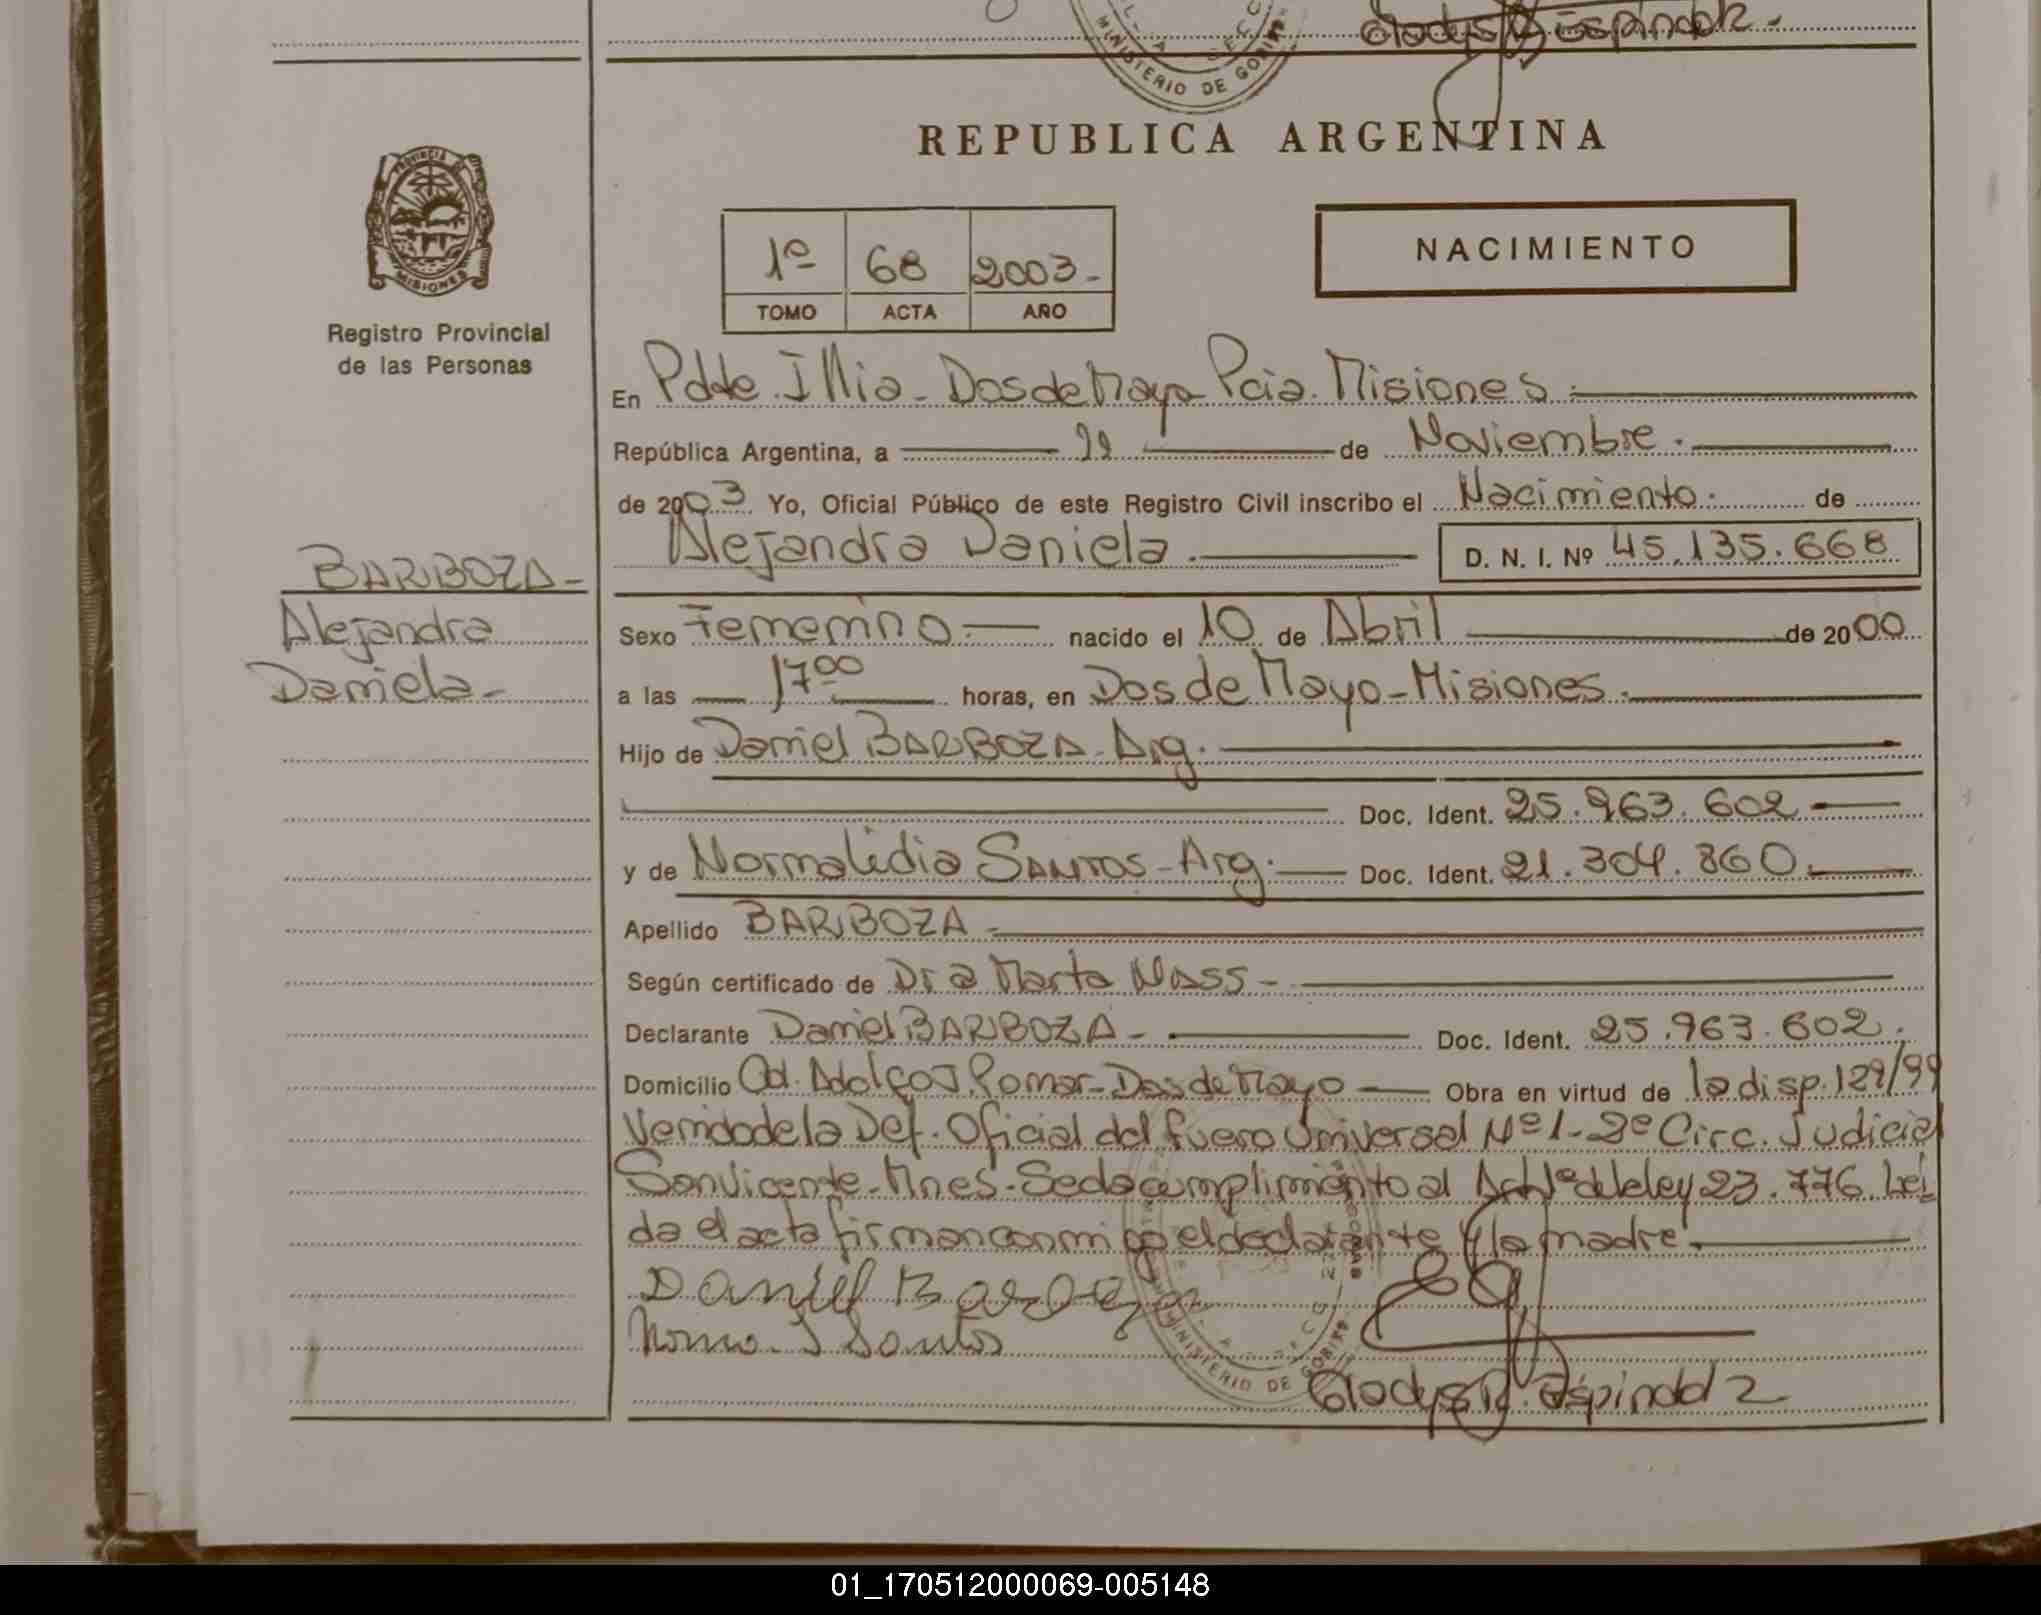 Gladys R. Espindola.
MINISTERIO DE GOBIER
REPUBLICA ARGENTINA
PROVINCIA DE
MISIONES
Registro Provincial
de las Personas
1º 68 2003-
TOMO ACTA AÑO
NACIMIENTO
En Pdte. Illia - Dos de Mayo Pcia. Misiones.
República Argentina, a de Noviembre.
de 2003 Yo, Oficial Público de este Registro Civil inscribo el Nacimiento. de
Alejandra Daniela. D. N. I. Nº 45.135.668
BARBOZA-
Alejandra
Daniela-
Sexo Femenino. nacido el 10 de Abril de 2000
a las 17ºº horas, en Dos de Mayo - Misiones.
Hijo de Daniel BARBOZA - Arg.
Doc. Ident. 25.963.602
y de Norma Lidia SANTOS - Arg. Doc. Ident. 21.304.860.
Apellido BARBOZA -
Según certificado de Dra Marta Nass -
Declarante Daniel BARBOZA - Doc. Ident. 25.963.602.
Domicilio Col. Adolfo J. Pomar - Dos de Mayo Obra en virtud de la disp. 129/99
Venida de la Def. Oficial del fuero Universal Nº 1 - 2º Circ. Judicial
San Vicente - Mnes. Se da cumplimiento al Art 1º de la ley 23.776. Leí
da el acta firman conmigo el declarante y la madre.
Daniel Barboza
Norma L Santos
MINISTERIO DE GOBIER
Gladys R. Espindola
01_170512000069-005148